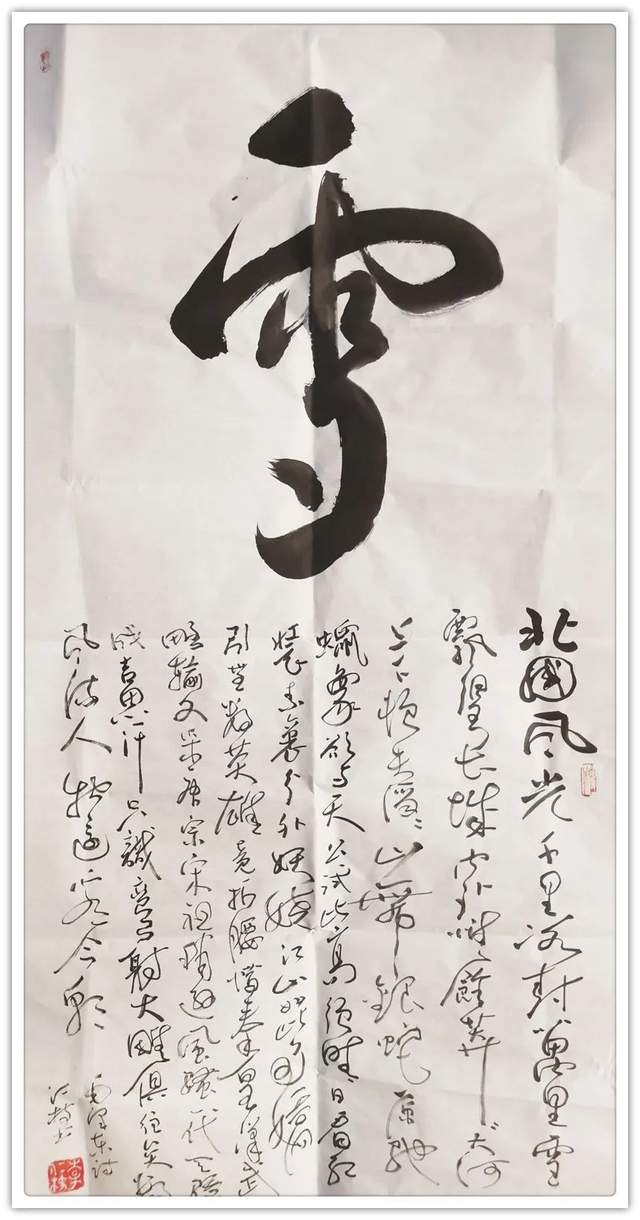 雪
北國風光千里冰封萬里雪
飄望長城內外惟餘莽莽大河
上下頓失滔滔山舞銀蛇原馳
蠟象欲與天公試比高須晴日看紅
裝素裹分外妖嬈江山如此多嬌
引無數英雄競折腰惜秦皇漢武
略輸文采唐宗宋祖稍遜風騷一代天驕
成吉思汗只識彎弓射大雕俱往矣數
風流人物還看今朝
毛澤東詩